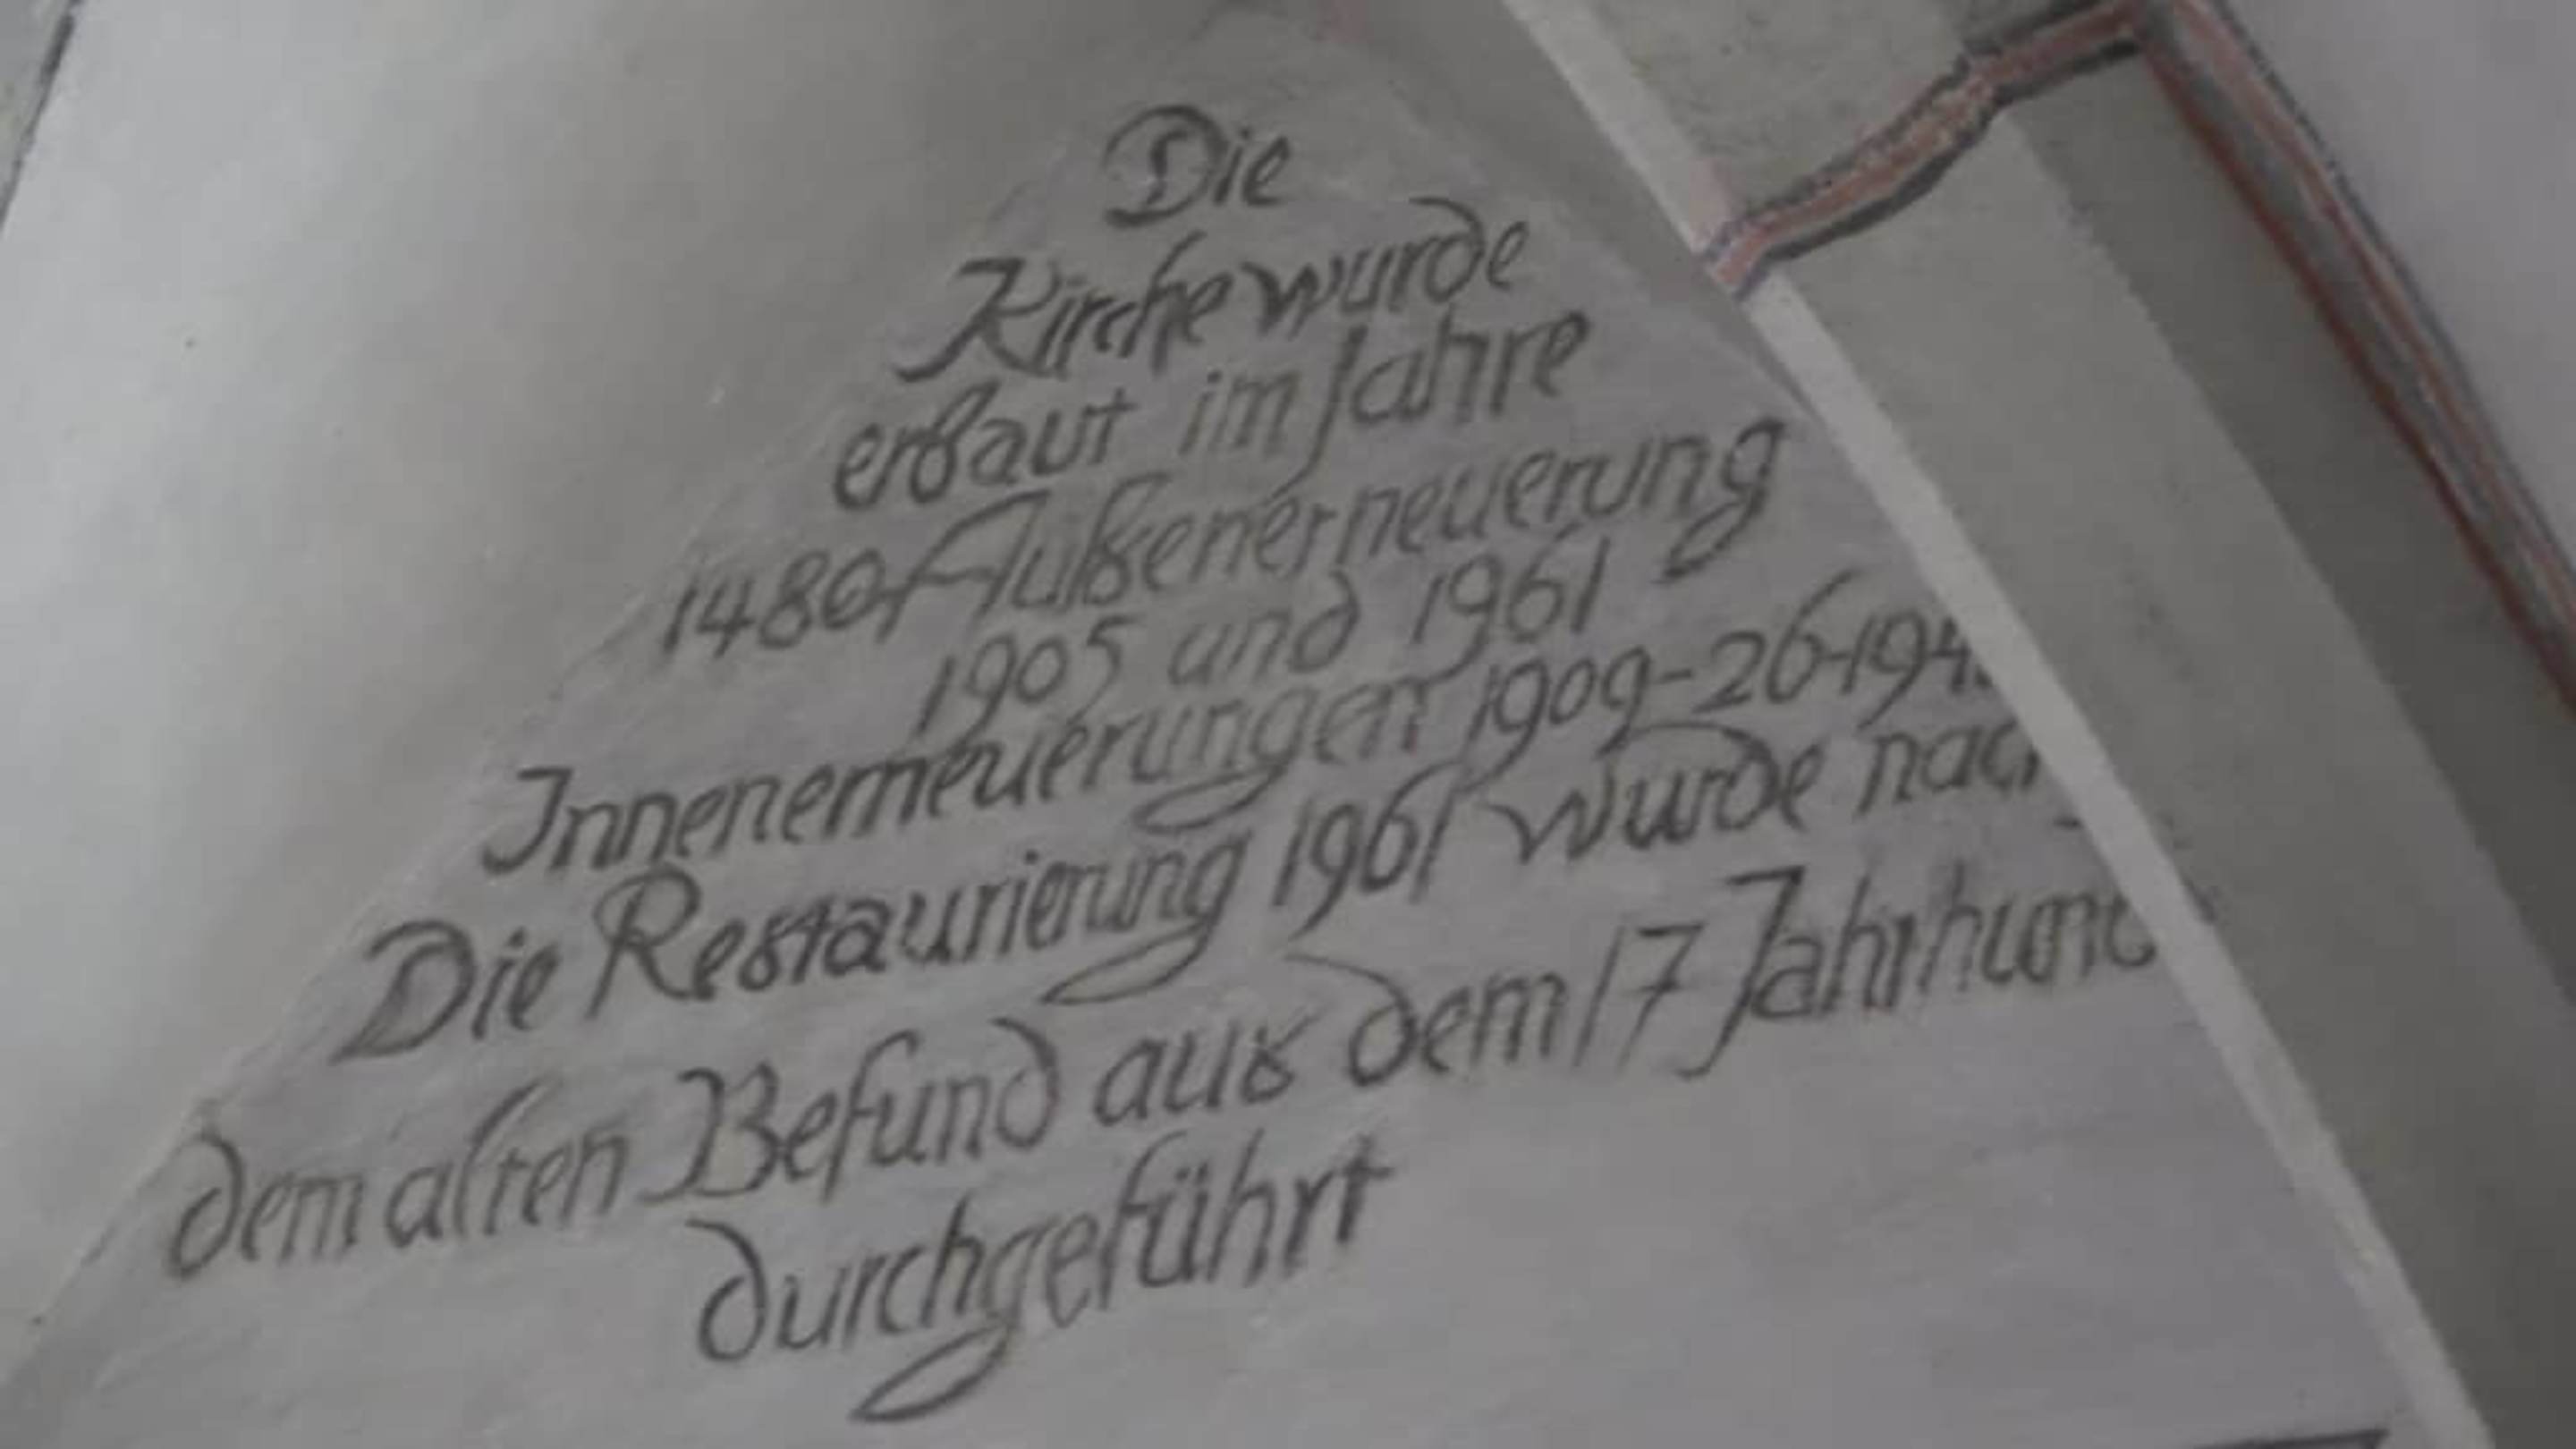 Die
Kirche wurde
erbaut im Jahre
1480 Außenerneuerung
1905 und 1961
Innenerneuerungen 1909-26-194
Die Restaurierung 1961 wurde nach
dem alten Befund aus dem 17 Jahrhund
durchgeführt